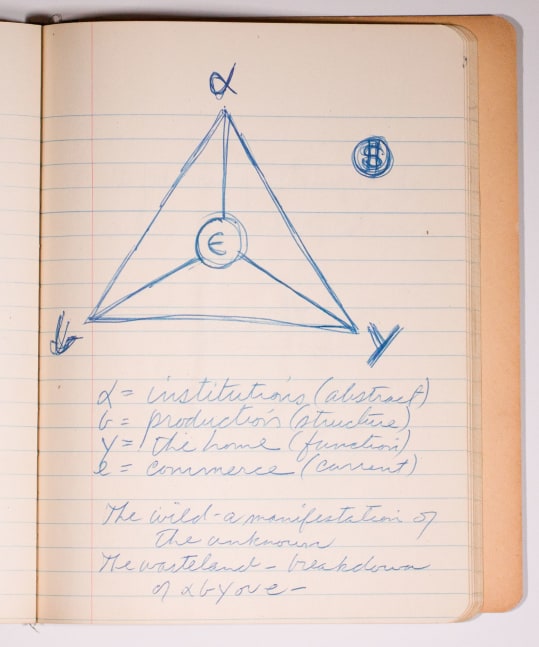 α
$
ϵ
y
α = institutions (abstract)
b = production (structure)
y = the home (function)
e = commerce (current)
The wild - a manifestation of
the unknown
The wasteland - breakdown
of α b y or e -